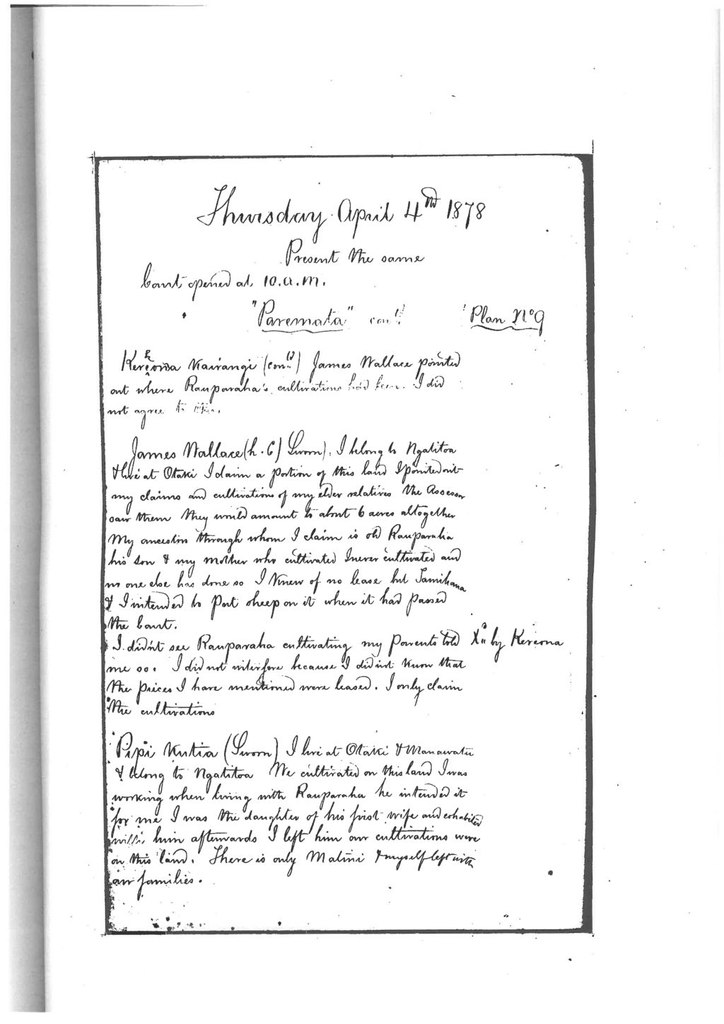 Thursday April 4th 1878
Present the same
Court opened at 10.a.m.
"Paremata" contd. Plan No 9
Kereona Kairangi (contd) James Wallace pointed
out where Rauparaha's cultivations had been. I did
not agree to
James Wallace (h.c) (Sworn). I belong to Ngatitoa
& live at Otaki I claim a portion of this land I pointed out
my claims and cultivations of my elder relatives the Assessor
saw them they would amount to about 6 acres altogether
My ancestor through whom I claim is old Rauparaha
his son & my mother who cultivated I never cultivated and
no one else has done so I knew of no lease but Tamihana
& I intended to put sheep on it when it had passed
the Court.
I didn't see Rauparaha cultivating my parents told Xd by Kereona
me so. I did not interfere because I didn't know that
the pieces I have mentioned were leased. I only claim
the cultivations
Pipi Kutia (Sworn) I live at Otaki & Manawatu
& belong to Ngatitoa We cultivated on this land I was
working when living with Rauparaha he intended it
for me I was the daughter of his first wife and cohabited
with him afterwards I left him our cultivations were
on this land. There is only Matini & myself left with
our families.